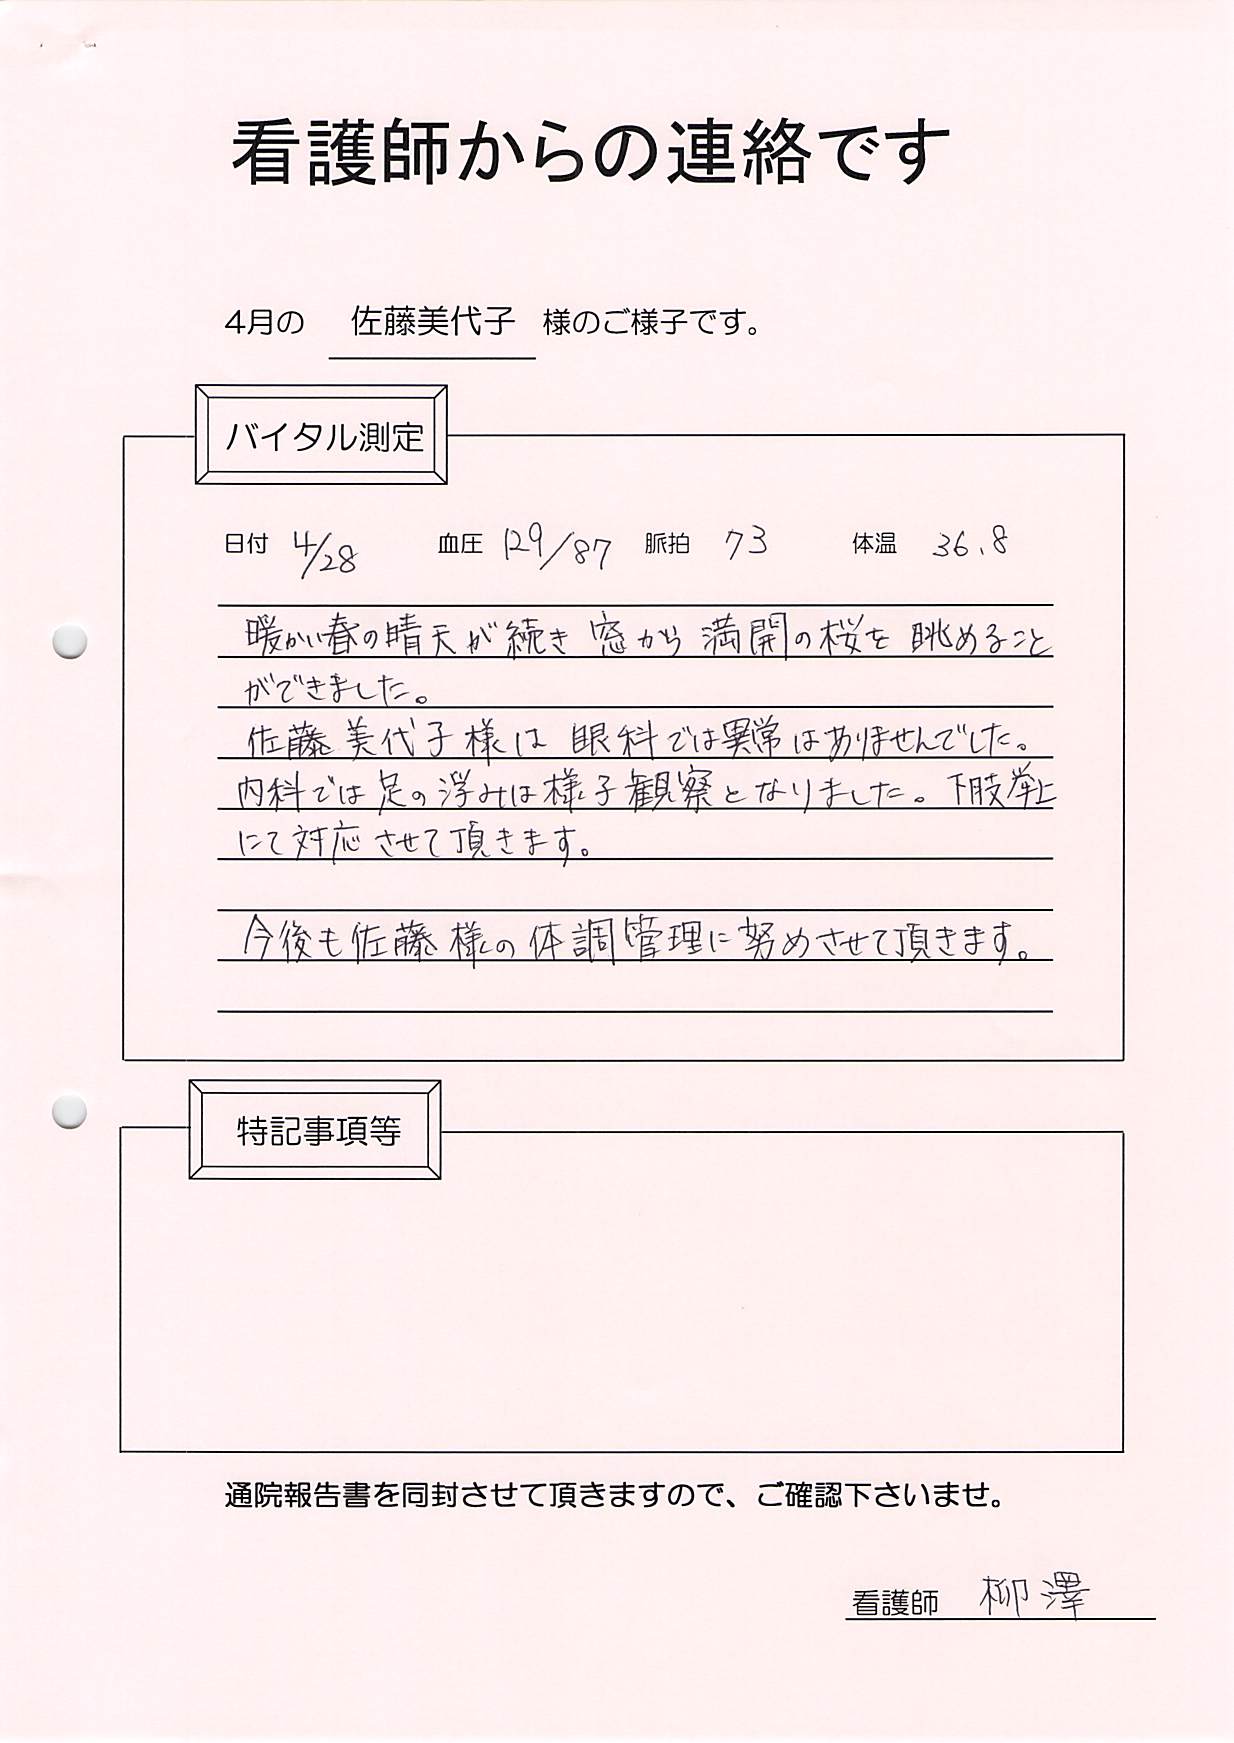 看護師からの連絡です
4月の 佐藤美代子 様のご様子です。
バイタル測定
日付 4/28 血圧 129/87 脈拍 73 体温 36.8
暖かい春の晴天が続き 窓から 満開の桜を 眺めること
ができました。
佐藤美代子様は 眼科では異常はありませんでした。
内科では足の浮みは様子観察となりました。下肢挙上
にて対応させて頂きます。
今後も佐藤様の体調管理に努めさせて頂きます。
特記事項等
通院報告書を同封させて頂きますので、ご確認下さいませ。
看護師 柳澤